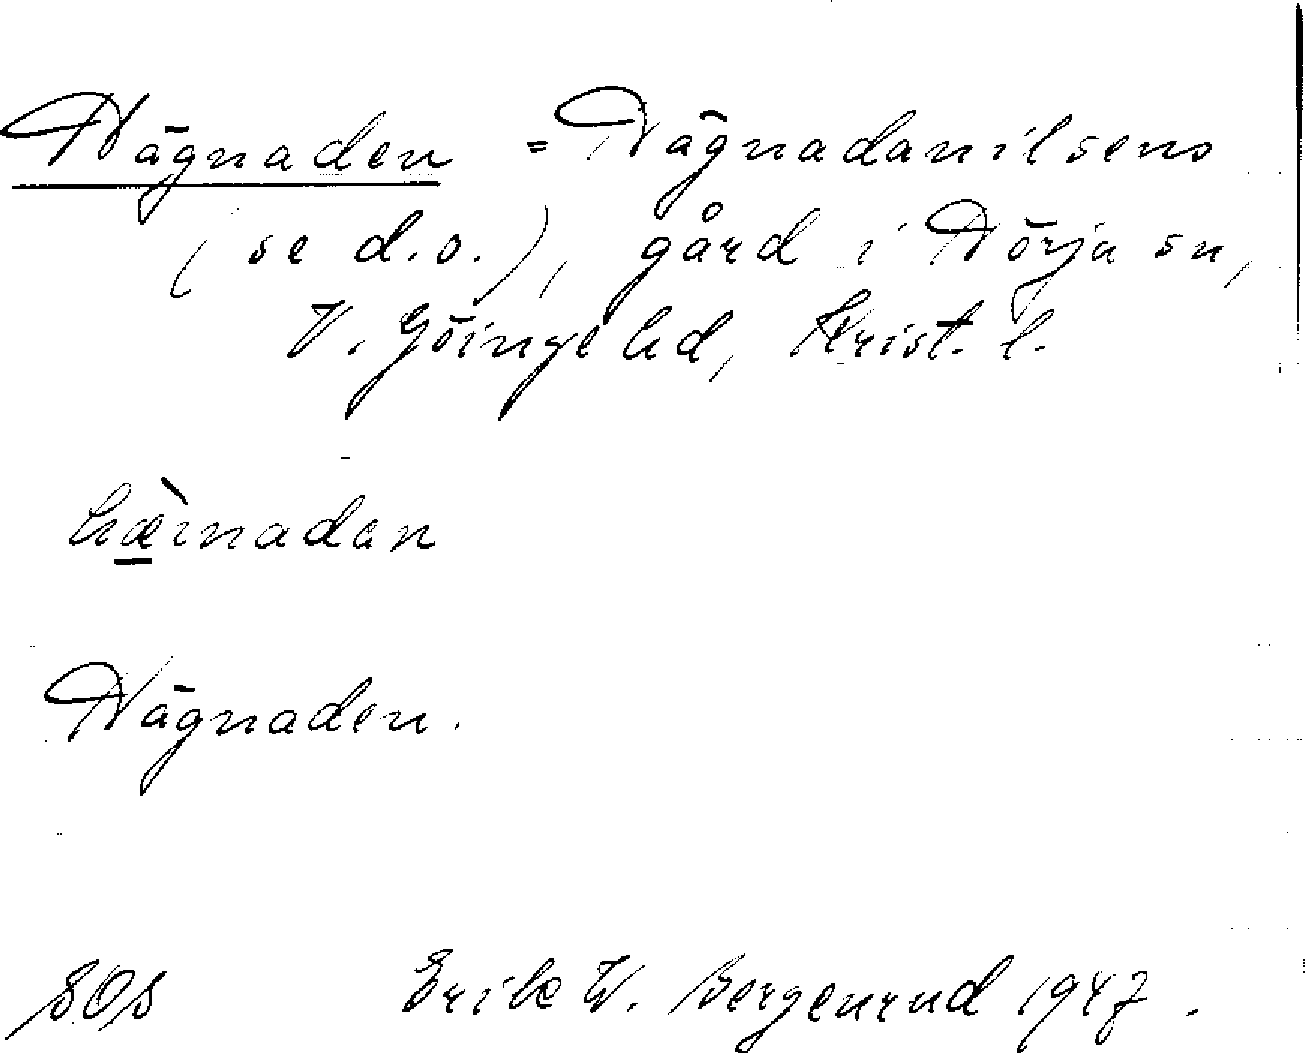 Hägnaden = Hägnadanilsens
(se d.o.), gård i Hörja sn,
V. Göinge hd, Krist. l.
hæ̀inadan
Hägnaden.
SOS Erik W. Bergenrud 1947.